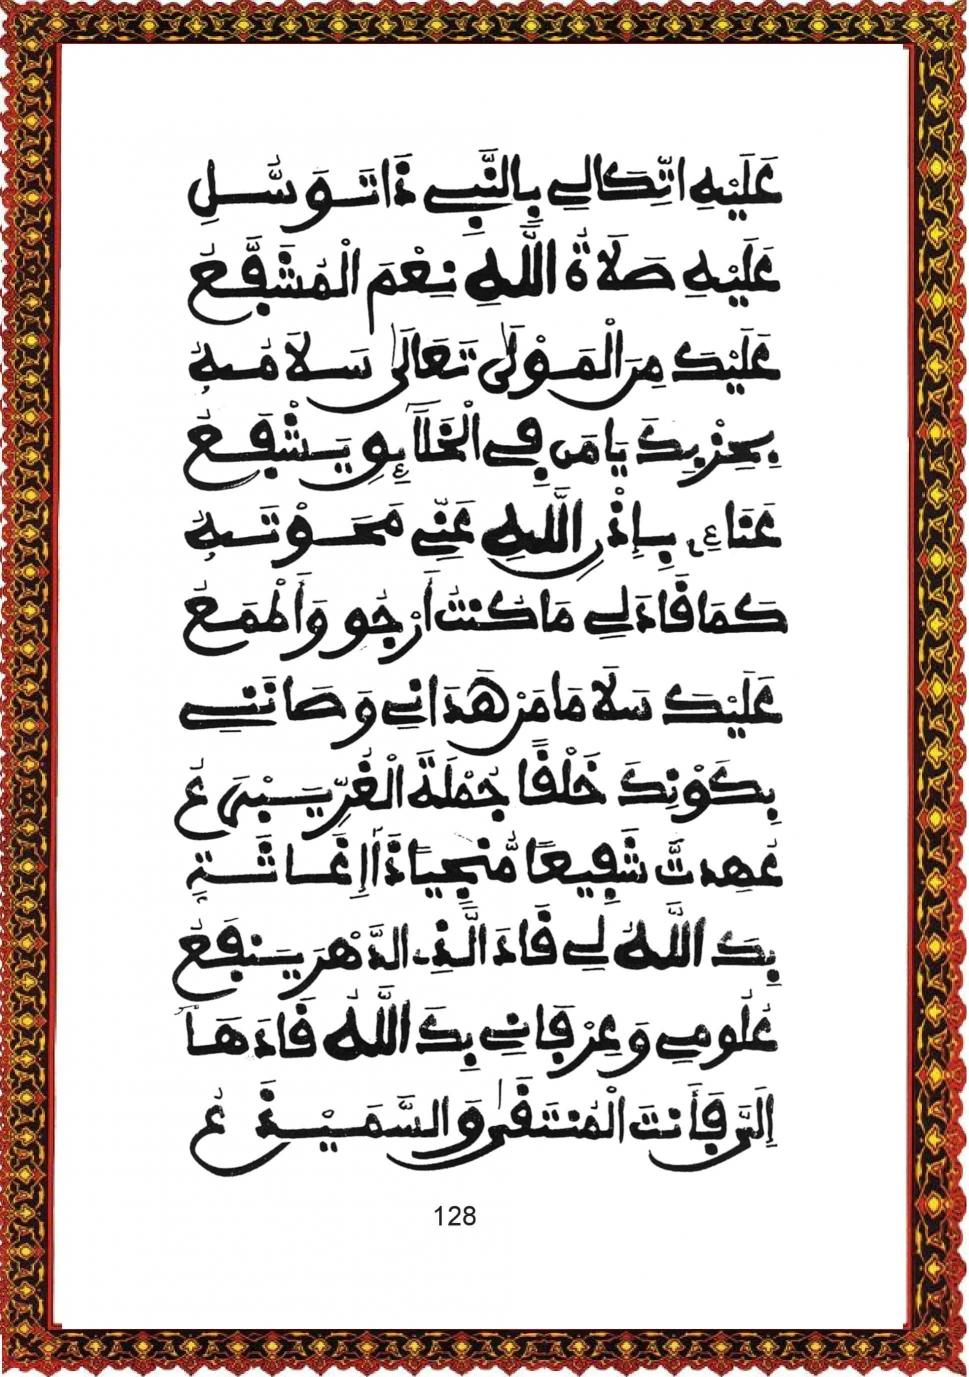 عَلَيْهِ اتِّكَالِي بِالنَّبِي ذَا تَوَسُّلِ
عَلَيْهِ صَلَاةُ اللَّهِ نِعْمَ الْمُشَفَّعُ
عَلَيْكَ مِنَ الْمَوْلَىٰ تَعَالَىٰ سَلَامُهُ
بِحِزْبِكَ يَا مَن فِي الْخَلَآئِقِ يَشْفَعُ
عَنَاءِي بِإِذْنِ اللَّهِ عَنِّي مَحَوْتَهُ
كَمَا قَادَ لِي مَا كُنتُ أَرْجُو وَأَطْمَعُ
عَلَيْكَ سَلَامَا مَنْ هَدَانِي وَصَانَنِي
بِكَوْنِكَ خَلْفًا جُمْلَةَ الْغُرِّ يَسْبِقُ
عُهِدتَّ شَفِيعًا مُّنجِيًا ذَا إِغَاثَةٍ
بِكَ اللَّهُ لِي قَادَ الَّذِي الدَّهْرَ يَنفَعُ
عُلُومِي وَعِرْفَانِي بِكَ اللَّهُ قَادَهَا
إِلَيَّ فَأَنتَ الْمُنتَقَىٰ وَالسَّمَيْذَعُ
128